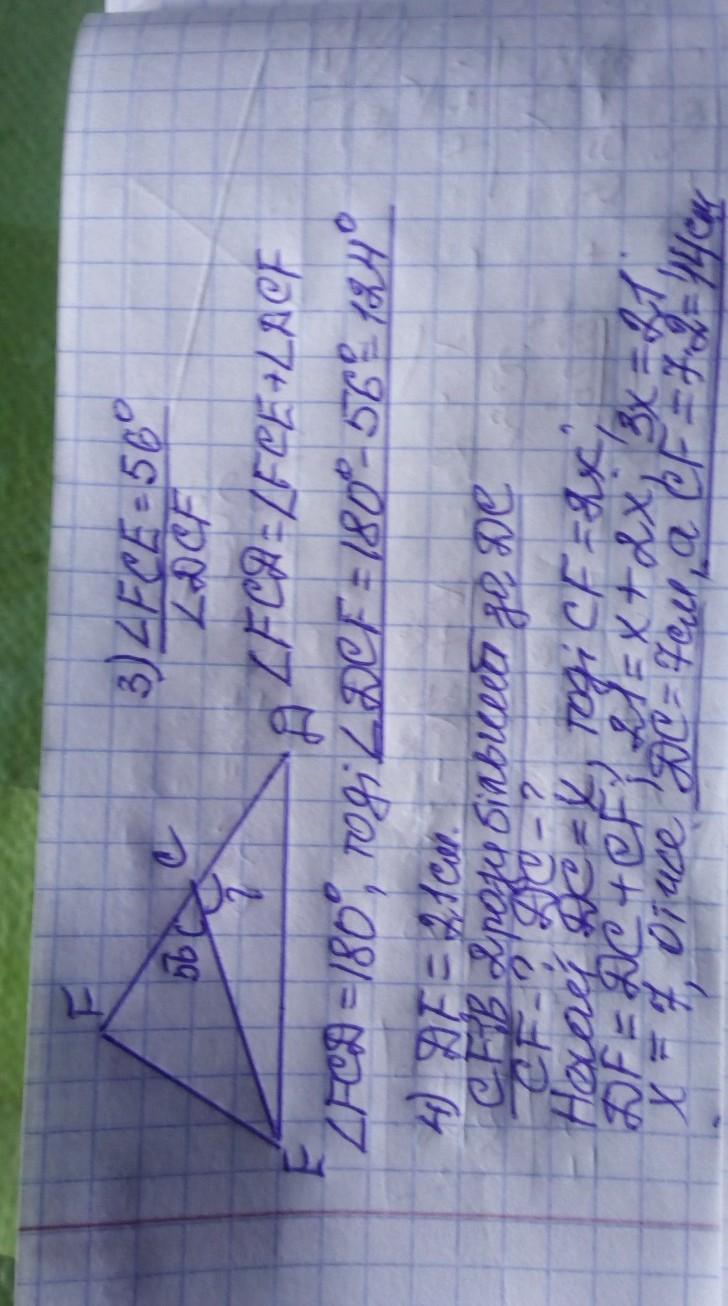 F
56
C
?
E
D
3) ∠FCE = 56°
∠DCF
∠FCD = ∠FCE + ∠DCF
∠FCD = 180°, тоді ∠DCF = 180° - 56° = 124°
4) DF = 21 см.
CF в 2 рази більший за DC
CF - ? DC - ?
Нехай DC = x, тоді CF = 2x,
DF = DC + CF, 21 = x + 2x, 3x = 21,
x = 7, отже DC = 7см, а CF = 7·2 = 14см